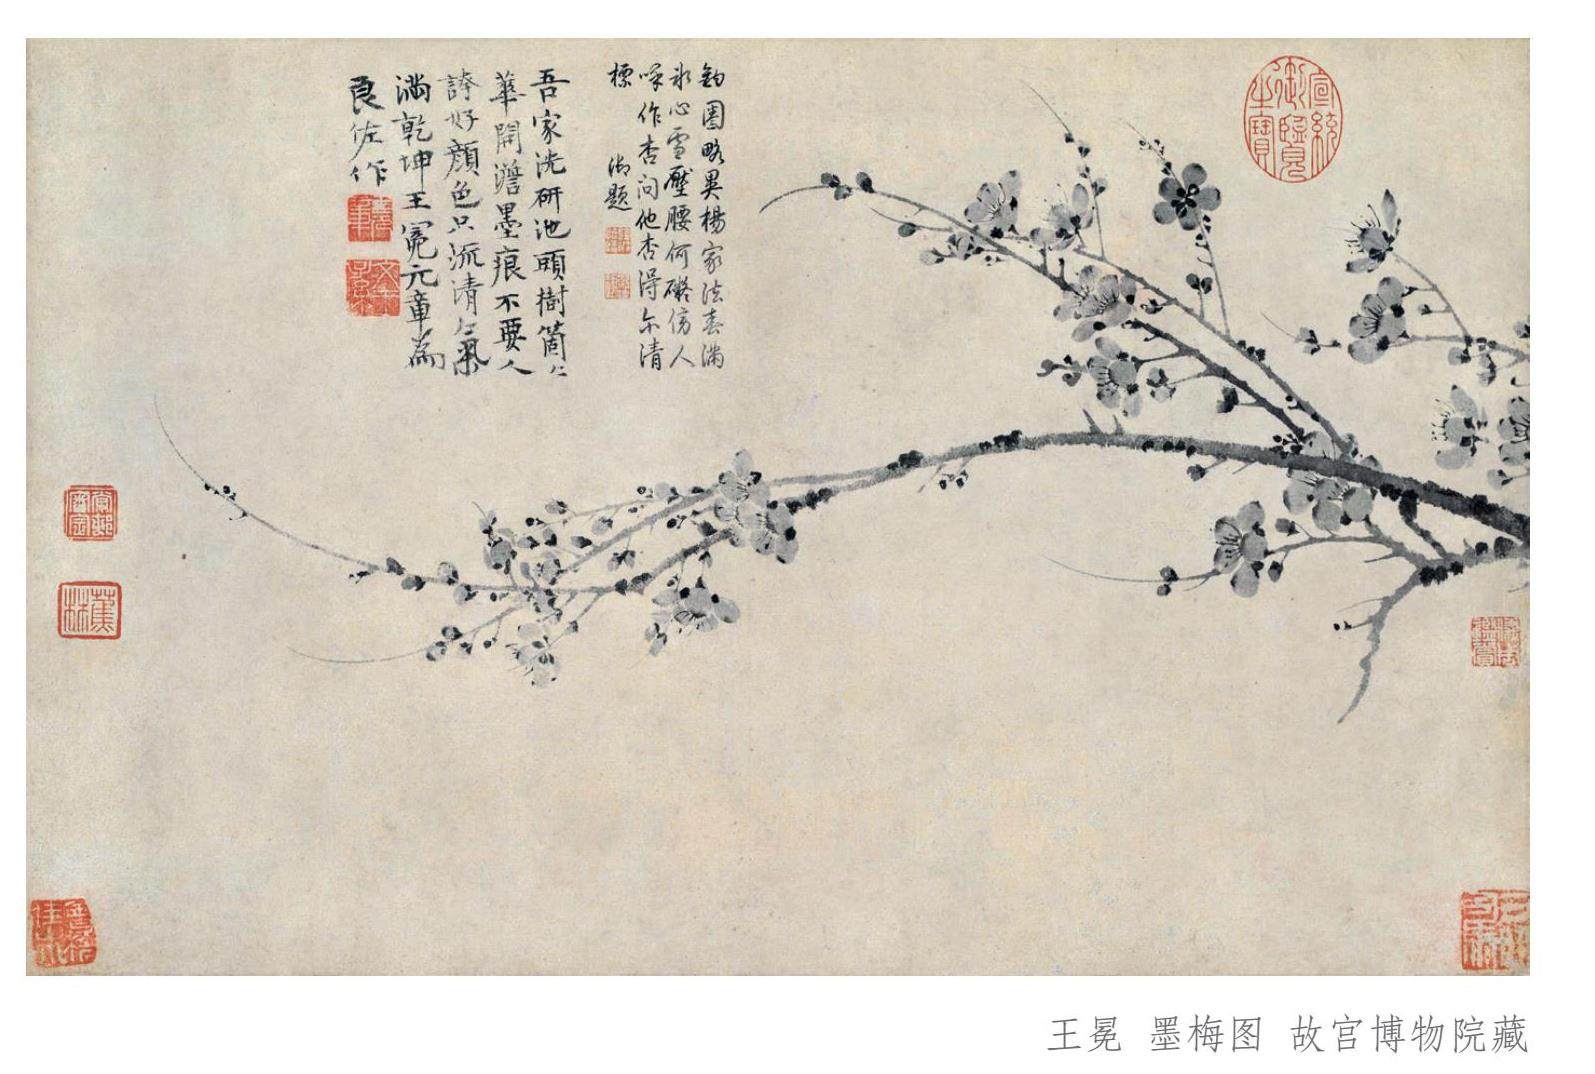 宣統
御覽
之寶
鈎圈略異楊家法春滿
冰心雪壓腰何礙傍人
喚作杏問他杏得尔清
標
御題
吾家洗研池頭樹箇〻
華開澹墨痕不要人
誇好顔色只流清氣
滿乾坤王冕元章為
良佐作
蕉林
王冕 墨梅图 故宫博物院藏